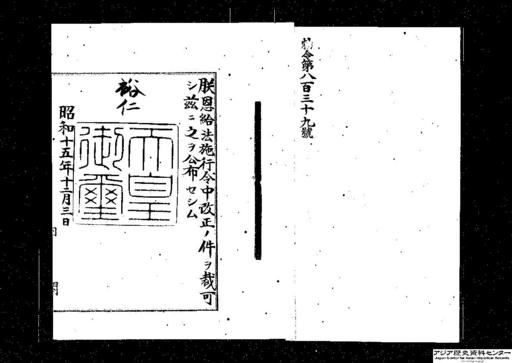 勅令第八百三十九號
朕恩給法施行令中改正ノ件ヲ裁可
シ茲ニ之ヲ公布セシム
裕仁
天皇
御璽
昭和十五年十二月三日
アジア歴史資料センター
Japan Center for Asian Historical Records